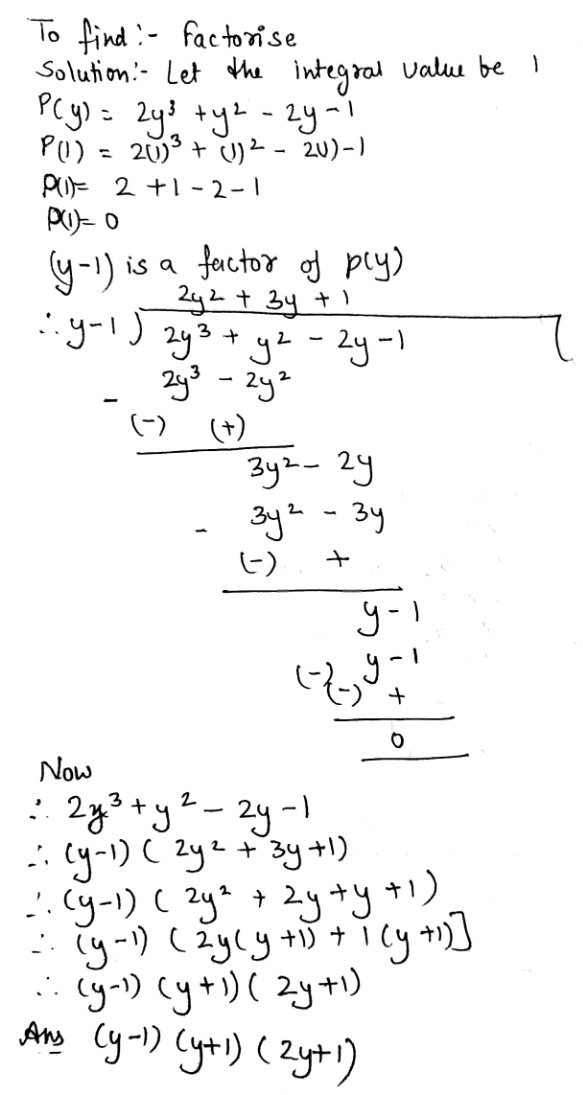 To find :- Factorise
Solution:- Let the integral value be 1
P(y) = 2y³ + y² - 2y - 1
P(1) = 2(1)³ + (1)² - 2(1) - 1
P(1)= 2 + 1 - 2 - 1
P(1)= 0
(y-1) is a factor of p(y)
2y² + 3y + 1
∴ y-1 ) 2y³ + y² - 2y - 1
- 2y³ - 2y²
(-) (+)
3y² - 2y
- 3y² - 3y
(-) +
y - 1
(-) y - 1
(-) +
0
Now
∴ 2y³ + y² - 2y - 1
∴ (y-1) ( 2y² + 3y + 1)
∴ (y-1) ( 2y² + 2y + y + 1)
∴ (y-1) ( 2y(y+1) + 1(y+1)]
∴ (y-1) (y+1) ( 2y+1)
Ans (y-1) (y+1) ( 2y+1)